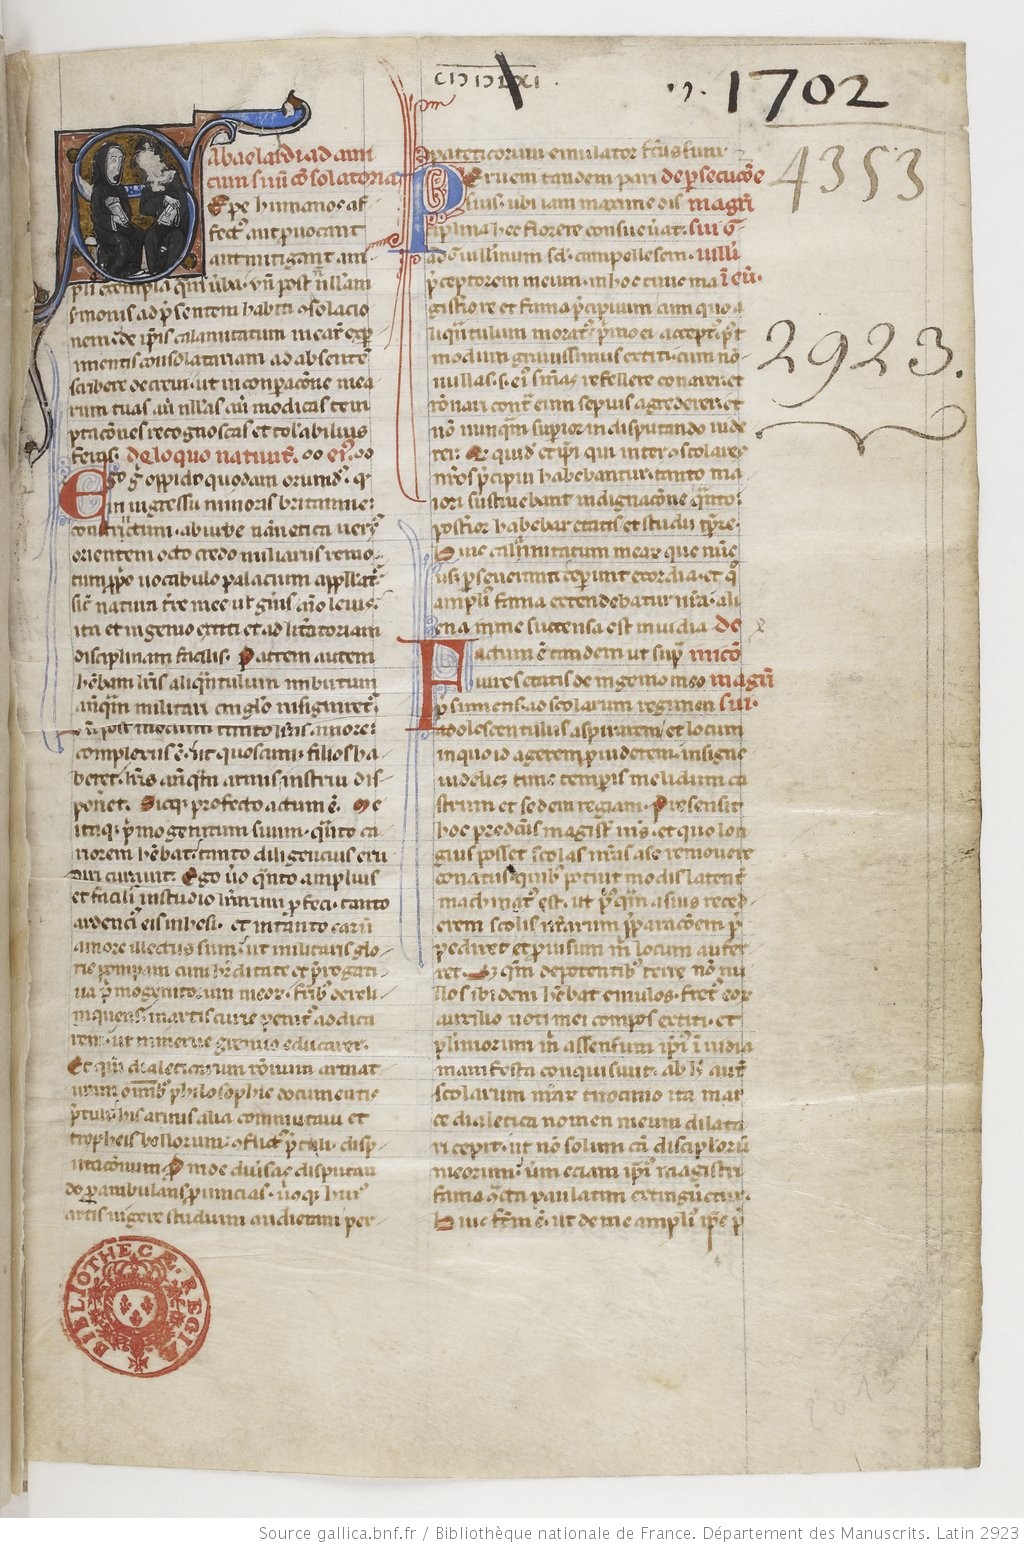 CIƆ IƆ LXI.
n. 1702
4353
2923.
Abaelardi ad ami
cum suum cōsolatoria
Sepe humanos af-
fectꝰ aut prouocant
aut mitigant am-
pli exempla quā uba. vn̄ post nllam
simonis ad psentem habiti ɔsolacio
nem. de ip̄is calamitatum mear̄ exper
imentis consolatoriam ad absentē
scribere decreui. ut in conparacōne mea
rum tuas aut nullas aut modicas tem
ptacōnes recognoscas et tol̄abilius
feras. de loquo natiuit̄. eiꝰ.
Ego g̊ oppido quodam oriund9. qd̄
in ingressu minoris britannie
constructum. ab urbe nānetica uersꝰ
orientem octo credo miliariis remo-
tum. ꝓprio uocabulo palacium appellat̄.
sic̄ natura tr̄e mee ul̓ gn̄is aīo leuis.
ita et ingenio extiti et ad litt̄atoriam
disciplinam facilis. Patrem autem
hēbam litt̄is aliqn̄tulum imbutum
antequā militari cingulo insigniret̄.
vn̄ post modum tanto litt̄as amore
complexus ē. ut quoscunqꝫ filios ha
beret. litt̄is anteqm̄ armis instrui dis-
poneret. Sicqꝫ profecto actum ē. Me
itaqꝫ pmogenitum suum. qn̄to ca
riorem hēbat. tanto diligencius eru
diri curauit. Ego ūo qn̄to amplius
et facili᷒ in studio litt̄arum ꝓfeci. tanto
ardenci᷒ eis inhesi. et in tanto earū
amore illectus sum. ut militaris glo-
rie pompam cum hr̄editate et p̄rogati
ua pmogenitorum meor̄. frīb᷒ dereli-
nquens. martis curie penit᷒ abdica
rem. ut minerue gremio educarer.
Et qm̄ dialeticarum rōnum armat
uram omīb᷒ philosophie documentis
ptuli. his armis alia commutaui et
tropheis bellorum ɔflictꝰ p̄tuli disp-
utacōnum. Proinde diūsas disputan
do pambulans puincias. ubicūqꝫ hui᷒
artis uigere studium audieram. per-
ipateticorum emulator fcūs sum.
Perueni tandem paris de persecucōe
sius. ubi iam maxime dis magri
ciplina hec florere consueuerat. sui G-
ad Guillinum sc̄. campellensem. uilli
p̄ceptorem meum. in hoc tunc ma ī eū.
gisterio et fama p̄cipuum. cum quo a
liqn̄tulum morat᷒. primo ei accept᷒. post
modum grauissimus extiti. cum nō-
nullas. s. ei᷒ sn̄ias refellere conarer. et
rōnari cont̄ eum sepius agrederer. et
nō nunqm̄ supior in disputando uide
rer. Qd̄ quidē et ip̄i qui inter ɔscolares
nr̄os p̄cipui habebantur. tanto ma
iori sustinebant indignacōne. qn̄to
posterior habebar etatis et studii tpr̄e.
Hinc calamitatum mear̄ que nunc
usqꝫ pseuerant ceperunt exordia. et quo
ampli᷒ fama extendebatur nr̄a. ali
ena in me succensa est inuidia. de
Factum ē tandem ut sup̄ inicō
uires etatis de ingenio meo magrī
p̄sumens. ad scolarum regimen sui.
adolescentulus aspirarem. et locum
in quo id agerem puiderem. insigne
uidelicet tunc tempis melidunum ca
strum et sedem regiam. Presensit
hoc predictus magist̄ m̄s. et quo lon
gius posset scolas nr̄as a se remouere
conatus. quib᷒ potuit modis latent̄
machinat᷒ est. ut p᷒qm̄ a suis reced-
erem scolis nr̄arum p̄paracōem p̄
pediret et prouisum m̄ locum aufer
ret. S; qm̄ de potentib᷒ terre nōnu
llos ibidem hēbat emulos. fret᷒ eor̄
auxilio uoti mei compos extiti. et
plurimorum m̄ assensum ip̄i᷒ īuidia
manifesta conquisiuit. ab h᷒ aut̄
scolarum mear̄ tirocinio ita in ar
te dialetica nomen meum dilata
ri cepit. ut nō solum cōdisciplorū
meorum. uerum eciam ip̄i᷒ magistri
fama ɔtracta paulatim extingueretur.
Hinc factum ē. ut de me ampli᷒ ip̄e p̄
BIBLIOTHECÆ REGIÆ
Source gallica.bnf.fr / Bibliothèque nationale de France. Département des Manuscrits. Latin 2923